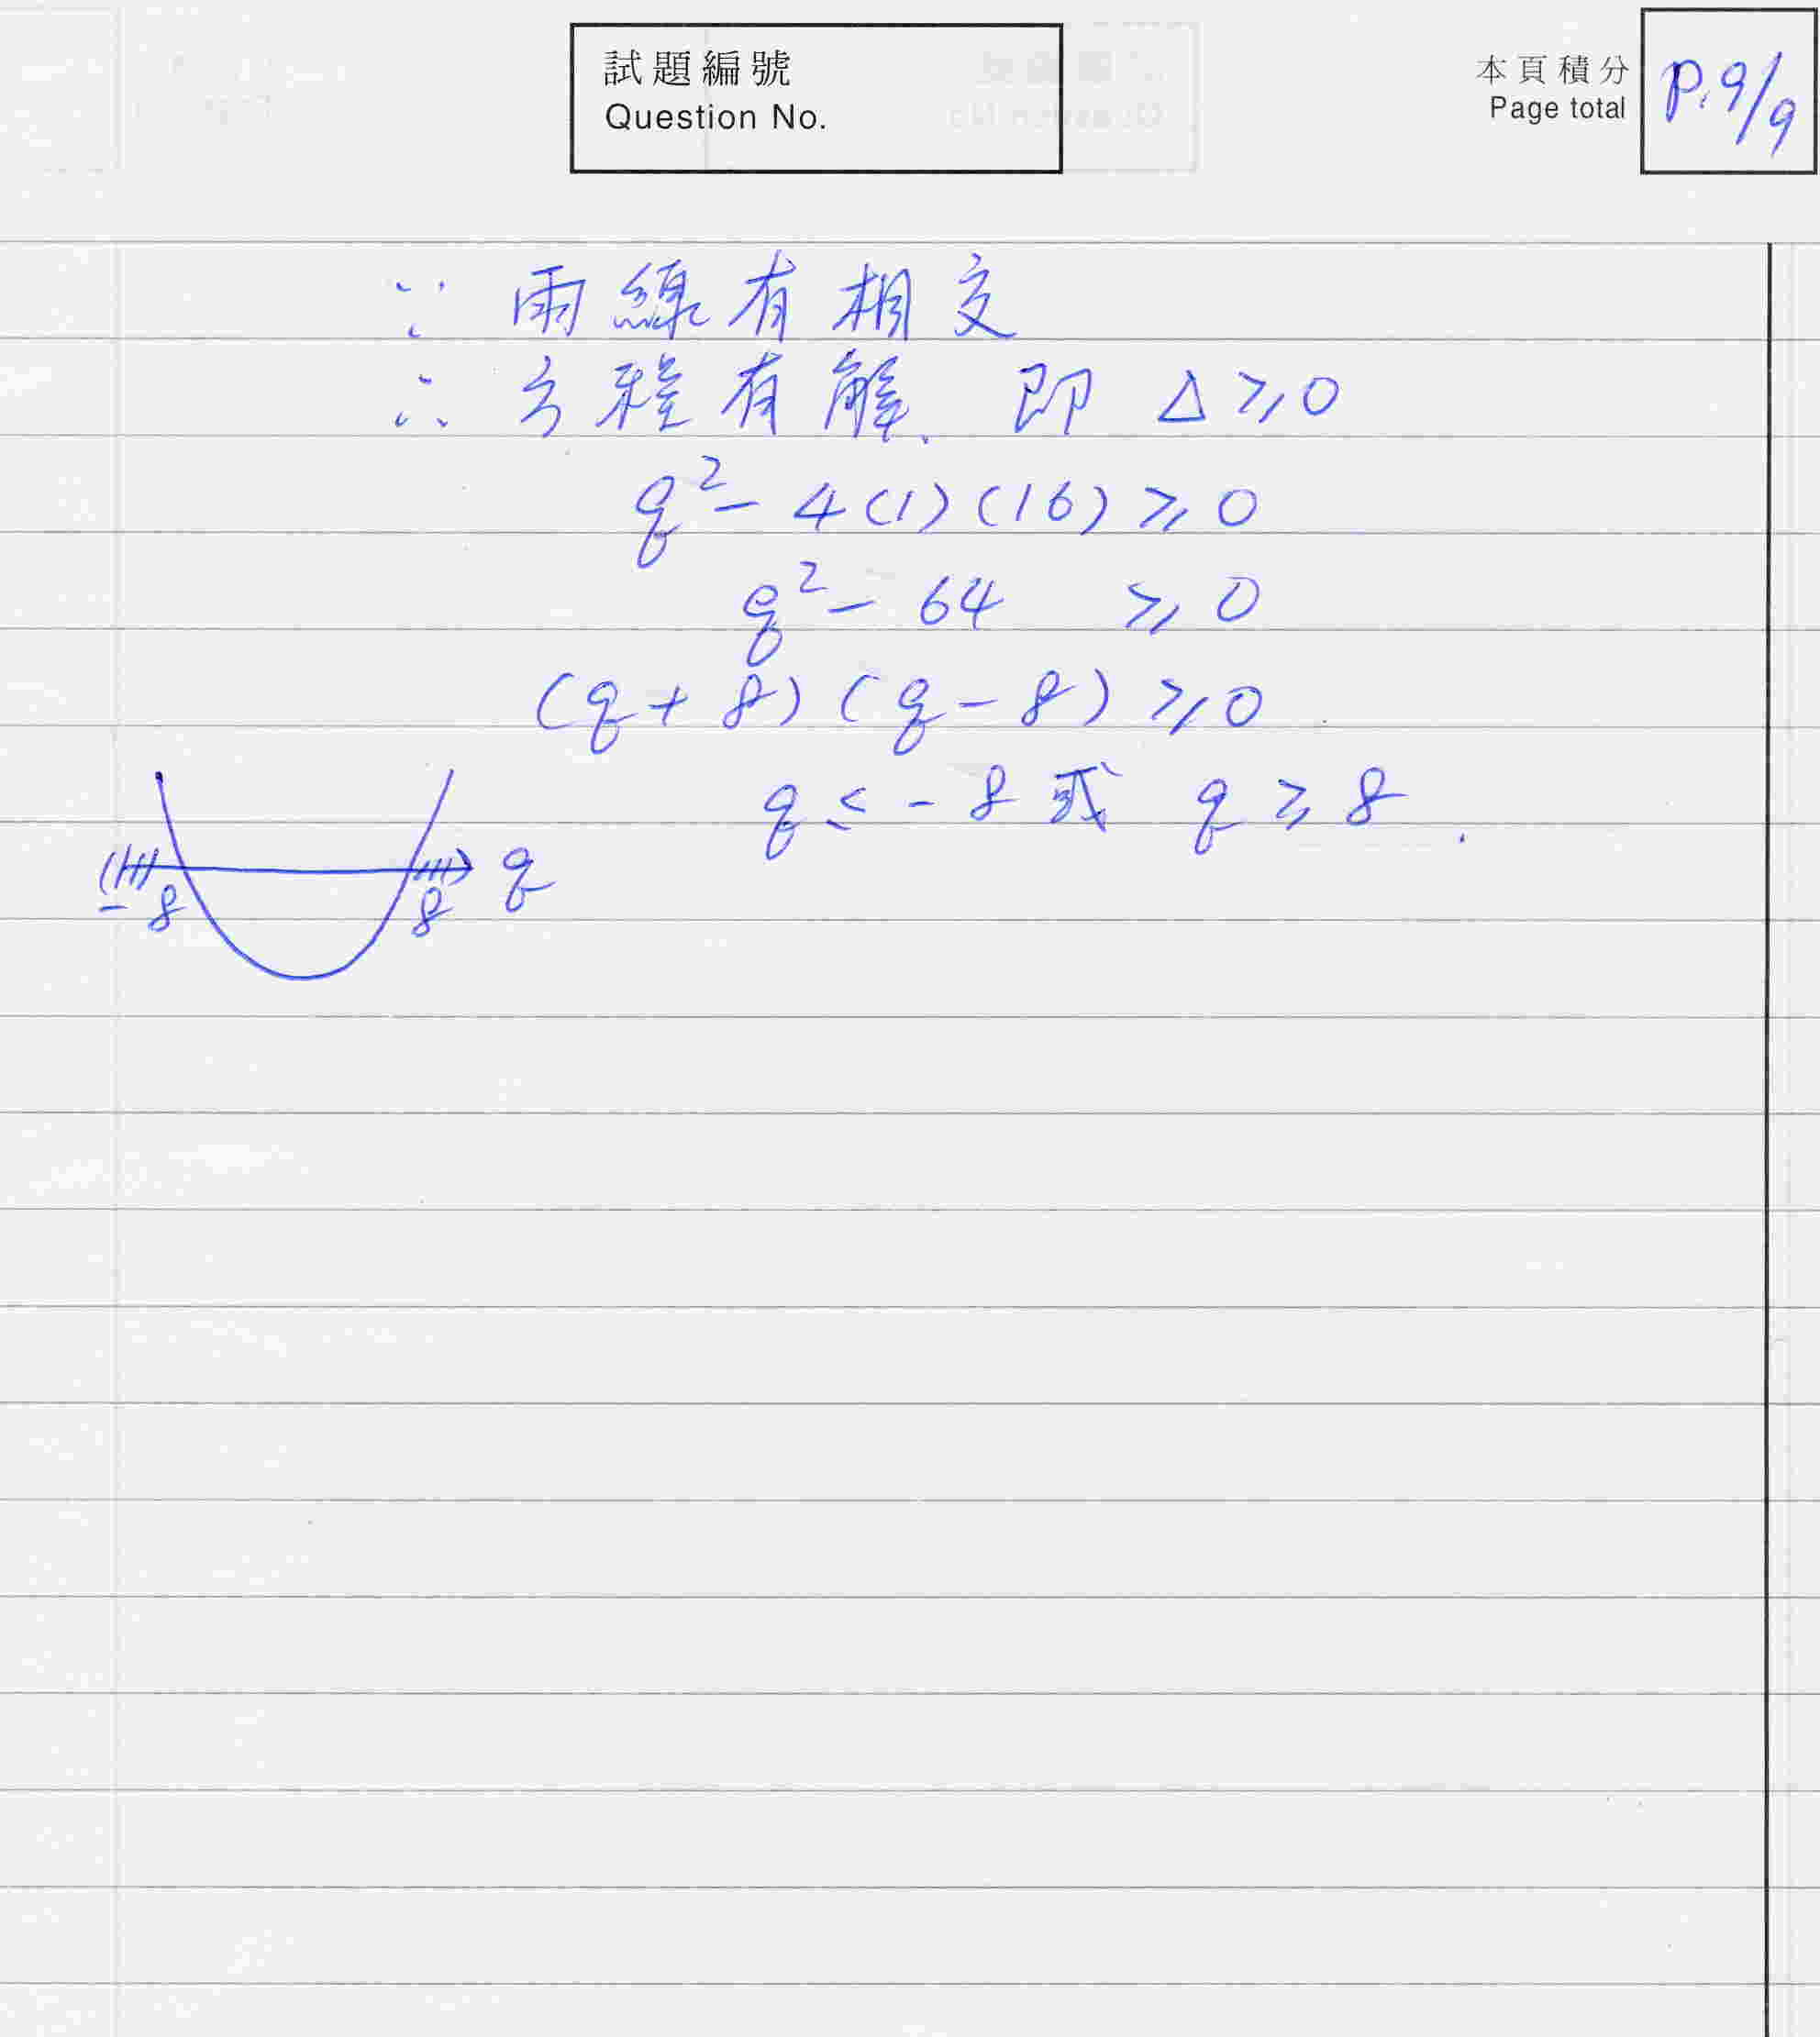 試題編號
Question No.
本頁積分
Page total
P.9/9
∵ 兩線有相交
∴ 方程有解. 即 Δ ≥ 0
q² - 4(1)(16) ≥ 0
q² - 64 ≥ 0
(q + 8)(q - 8) ≥ 0
q ≤ -8 或 q ≥ 8.
-8 8 q